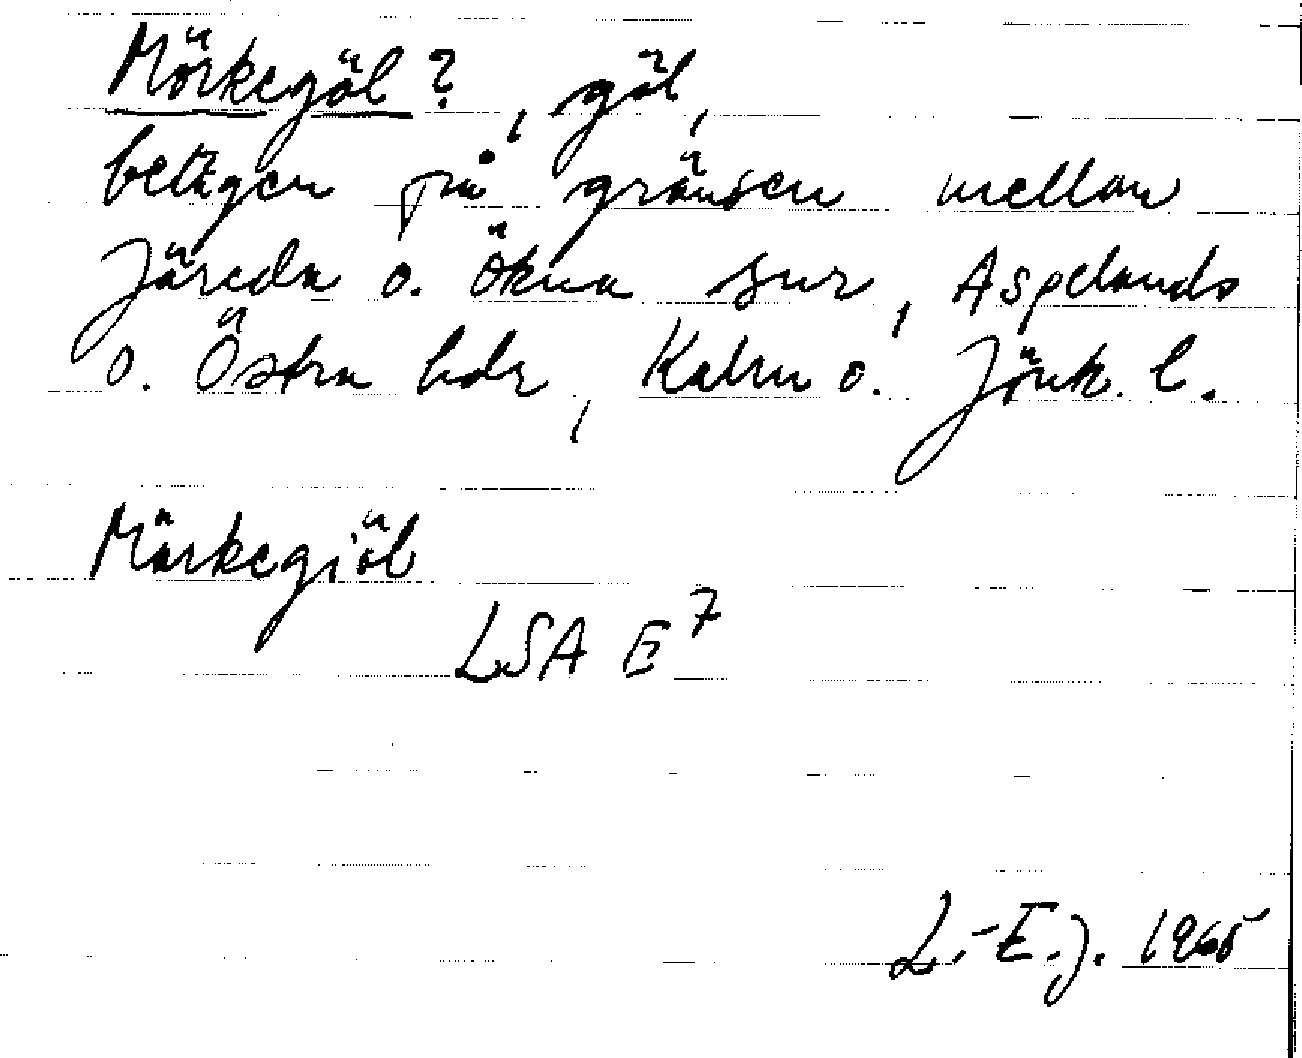 Mörkegöl?, göl,
belägen på gränsen mellan
Järeda o. Ökna snr, Aspelands
o. Östra hdr, Kalm o. Jönk. l.
Mörkegiöl
LSA E7
L.-E.J. 1965